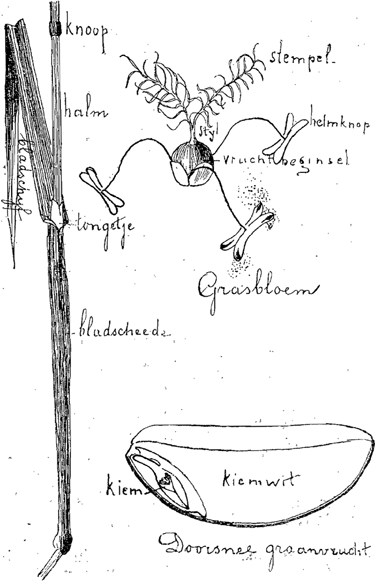 knoop
halm
bladschijf
tongetje
bladscheede
stempel
Styl
helmknop
vruchtbeginsel
Grasbloem
kiem
kiemwit
Doorsnee graanvrucht